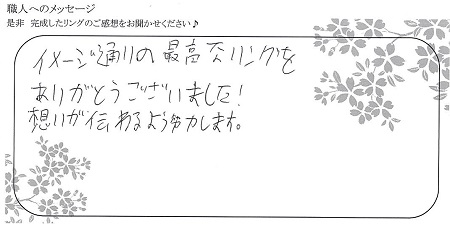 職人へのメッセージ
是非 完成したリングのご感想をお聞かせください♪
イメージ通りの最高なリングを
ありがとうございました!
想いが伝わるよう努力します。